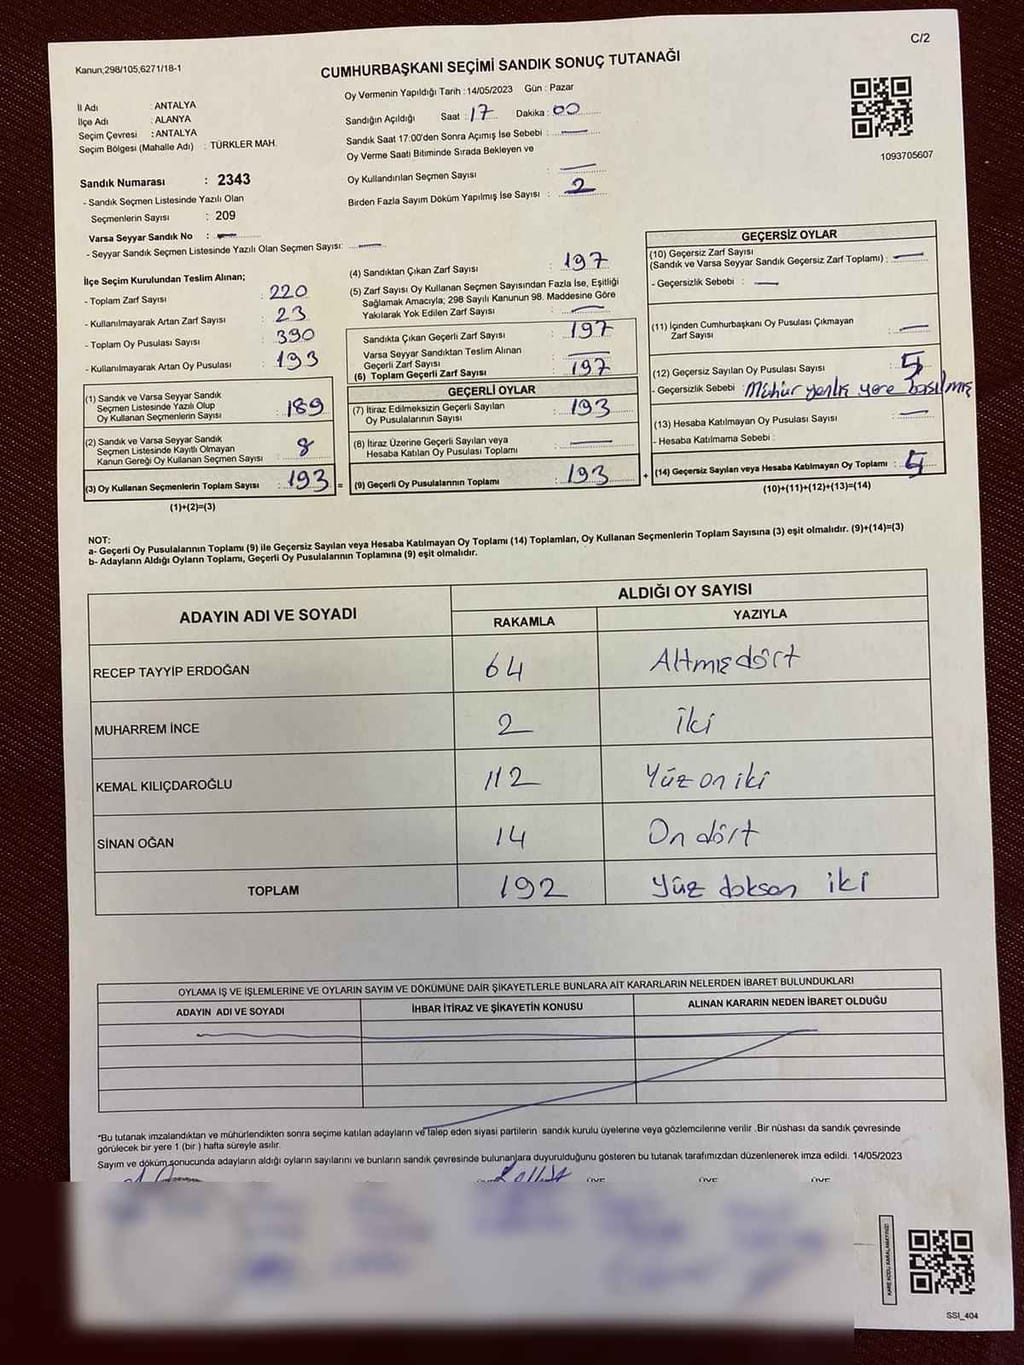 C/2
Kanun,298/105,6271/18-1
CUMHURBAŞKANI SEÇİMİ SANDIK SONUÇ TUTANAĞI
İl Adı : ANTALYA
İlçe Adı : ALANYA
Seçim Çevresi : ANTALYA
Seçim Bölgesi (Mahalle Adı) : TÜRKLER MAH.
Sandık Numarası : 2343
- Sandık Seçmen Listesinde Yazılı Olan
Seçmenlerin Sayısı : 209
Varsa Seyyar Sandık No :
- Seyyar Sandık Seçmen Listesinde Yazılı Olan Seçmen Sayısı:
Oy Vermenin Yapıldığı Tarih : 14/05/2023 Gün : Pazar
Sandığın Açıldığı Saat : 17 Dakika : 00
Sandık Saat 17:00'den Sonra Açımış İse Sebebi :
Oy Verme Saati Bitiminde Sırada Bekleyen ve
Oy Kullandırılan Seçmen Sayısı :
Birden Fazla Sayım Döküm Yapılmış İse Sayısı : 2
1093705607
İlçe Seçim Kurulundan Teslim Alınan;
- Toplam Zarf Sayısı : 220
- Kullanılmayarak Artan Zarf Sayısı : 23
- Toplam Oy Pusulası Sayısı : 390
- Kullanılmayarak Artan Oy Pusulası : 193
(1) Sandık ve Varsa Seyyar Sandık
Seçmen Listesinde Yazılı Olup
Oy Kullanan Seçmenlerin Sayısı : 189
(2) Sandık ve Varsa Seyyar Sandık
Seçmen Listesinde Kayıtlı Olmayan
Kanun Gereği Oy Kullanan Seçmen Sayısı : 8
(3) Oy Kullanan Seçmenlerin Toplam Sayısı : 193 =
(1)+(2)=(3)
(4) Sandıktan Çıkan Zarf Sayısı : 197
(5) Zarf Sayısı Oy Kullanan Seçmen Sayısından Fazla İse, Eşitliği
Sağlamak Amacıyla; 298 Sayılı Kanunun 98. Maddesine Göre
Yakılarak Yok Edilen Zarf Sayısı :
Sandıkta Çıkan Geçerli Zarf Sayısı : 197
Varsa Seyyar Sandıktan Teslim Alınan
Geçerli Zarf Sayısı :
(6) Toplam Geçerli Zarf Sayısı : 197
GEÇERLİ OYLAR
(7) İtiraz Edilmeksizin Geçerli Sayılan
Oy Pusulalarının Sayısı : 193
(8) İtiraz Üzerine Geçerli Sayılan veya
Hesaba Katılan Oy Pusulası Toplamı :
(9) Geçerli Oy Pusulalarının Toplamı : 193 +
GEÇERSİZ OYLAR
(10) Geçersiz Zarf Sayısı
(Sandık ve Varsa Seyyar Sandık Geçersiz Zarf Toplamı) :
- Geçersizlik Sebebi :
(11) İçinden Cumhurbaşkanı Oy Pusulası Çıkmayan
Zarf Sayısı :
(12) Geçersiz Sayılan Oy Pusulası Sayısı :
- Geçersizlik Sebebi : Mühür yanlış yere basılmış
(13) Hesaba Katılmayan Oy Pusulası Sayısı :
- Hesaba Katılmama Sebebi :
(14) Geçersiz Sayılan veya Hesaba Katılmayan Oy Toplamı :
(10)+(11)+(12)+(13)=(14)
NOT:
a- Geçerli Oy Pusulalarının Toplamı (9) ile Geçersiz Sayılan veya Hesaba Katılmayan Oy Toplamı (14) Toplamları, Oy Kullanan Seçmenlerin Toplam Sayısına (3) eşit olmalıdır. (9)+(14)=(3)
b- Adayların Aldığı Oyların Toplamı, Geçerli Oy Pusulalarının Toplamına (9) eşit olmalıdır.
ADAYIN ADI VE SOYADI
ALDIĞI OY SAYISI
RAKAMLA YAZIYLA
RECEP TAYYİP ERDOĞAN 64 Altmışdört
MUHARREM İNCE 2 iki
KEMAL KILIÇDAROĞLU 112 Yüz on iki
SİNAN OĞAN 14 On dört
TOPLAM 192 Yüz doksan iki
OYLAMA İŞ VE İŞLEMLERİNE VE OYLARIN SAYIM VE DÖKÜMÜNE DAİR ŞİKAYETLERLE BUNLARA AİT KARARLARIN NELERDEN İBARET BULUNDUKLARI
ADAYIN ADI VE SOYADI İHBAR İTİRAZ VE ŞİKAYETİN KONUSU ALINAN KARARIN NEDEN İBARET OLDUĞU
*Bu tutanak imzalandıktan ve mühürlendikten sonra seçime katılan adayların ve talep eden siyasi partilerin sandık kurulu üyelerine veya gözlemcilerine verilir .Bir nüshası da sandık çevresinde
görülecek bir yere 1 (bir ) hafta süreyle asılır.
Sayım ve döküm sonucunda adayların aldığı oyların sayılarını ve bunların sandık çevresinde bulunanlara duyurulduğunu gösteren bu tutanak tarafımızdan düzenlenerek imza edildi. 14/05/2023
ÜYE ÜYE ÜYE
KARE KODU KARALAMAYINIZ!
SSI_404